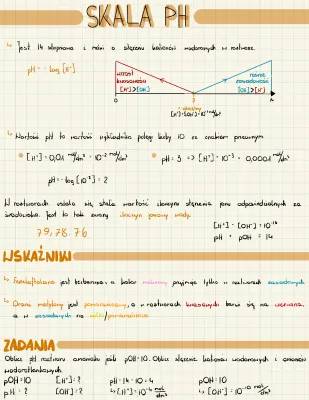 SKALA PH
↳ Jest 14 stopniowa i mówi o stężeniu kationów wodorowych w roztworze.
pH = - log [H⁺]
wzrost rośnie
kwasowości zasadowość
[H⁺]>[OH⁻] [OH⁻]>[H⁺]
0 7 14
[H⁺]=[OH⁻]=10⁻⁷ mol/dm³
↳ Wartość pH to wartość wykładnika potęgi liczby 10 ze znakiem przeciwnym
[H⁺] = 0,01 mol/dm³ = 10⁻² mol/dm³ pH = 3 => [H⁺] = 10⁻³ = 0,0001 mol/dm³
pH = - log [10⁻²] = 2
W roztworach ustala się stała wartość iloczynu stężenia jonów odpowiedzialnych za
środowisko. Jest to tak zwany iloczyn jonowy wody.
[H⁺] · [OH⁻] = 10⁻¹⁴
79, 78, 76 pH + pOH = 14
WSKAŹNIKI
↳ Fenoloftaleina jest bezbarwna, a kolor malinowy przyjmuje tylko w roztworach zasadowych
↳ Oranż metylowy jest pomarańczowy, a w roztworach kwasowych barwi się na czerwono,
a w zasadowych na żółto/pomarańczowo
ZADANIA
Oblicz pH roztworu amoniaku jeśli pOH=10. Oblicz stężenie kationów wodorowych i anionów
wodorotlenkowych.
pOH=10 [H⁺]=? pH = 14-10 = 4 pOH=10
pH=? [OH⁻]=? ↳ [H⁺]=10⁻⁴ mol/dm³ ↳ [OH⁻]=10⁻¹⁰ mol/dm³